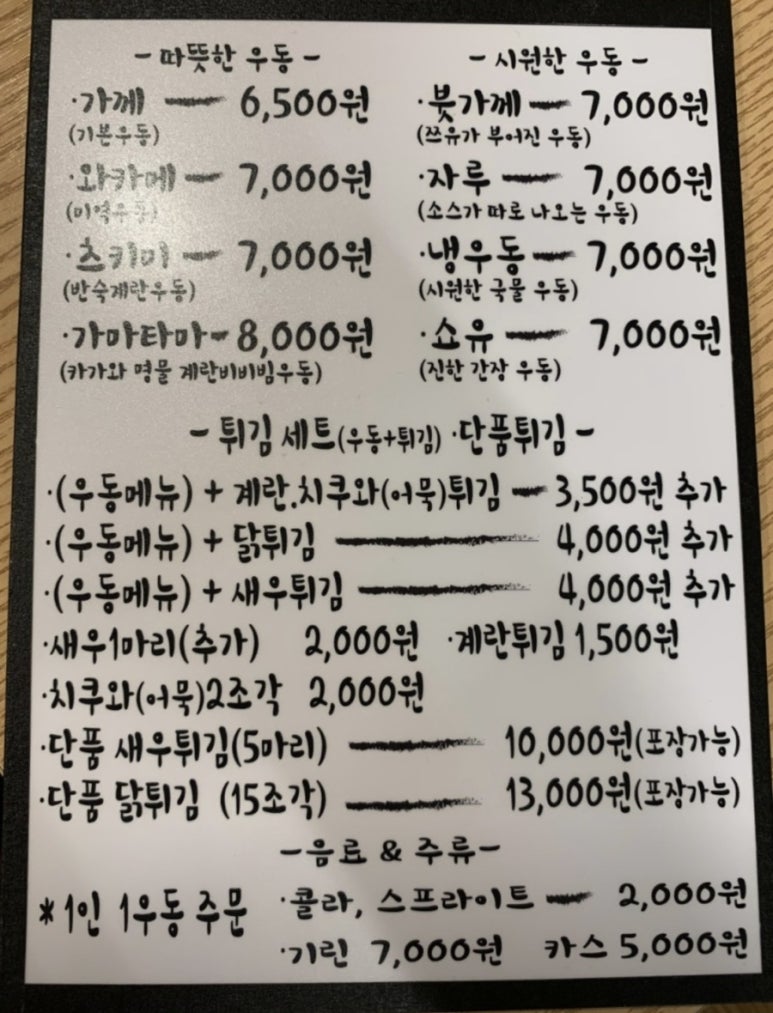 - 따뜻한 우동 -
·가께 — 6,500원
(기본우동)
·와카메 — 7,000원
(미역우동)
·츠키미 — 7,000원
(반숙계란우동)
·가마타마 - 8,000원
(카가와 명물 계란비비빔우동)
- 시원한 우동 -
·붓가께 — 7,000원
(쯔유가 부어진 우동)
·자루 — 7,000원
(소스가 따로 나오는 우동)
·냉우동 — 7,000원
(시원한 국물 우동)
·쇼유 — 7,000원
(진한 간장 우동)
- 튀김 세트(우동+튀김) ·단품튀김 -
·(우동메뉴) + 계란.치쿠와(어묵)튀김 — 3,500원 추가
·(우동메뉴) + 닭튀김 — 4,000원 추가
·(우동메뉴) + 새우튀김 — 4,000원 추가
·새우1마리(추가) 2,000원 ·계란튀김 1,500원
·치쿠와(어묵)2조각 2,000원
·단품 새우튀김(5마리) — 10,000원(포장가능)
·단품 닭튀김 (15조각) — 13,000원(포장가능)
- 음료 & 주류 -
*1인 1우동 주문
·콜라, 스프라이트 — 2,000원
·기린 7,000원 카스 5,000원